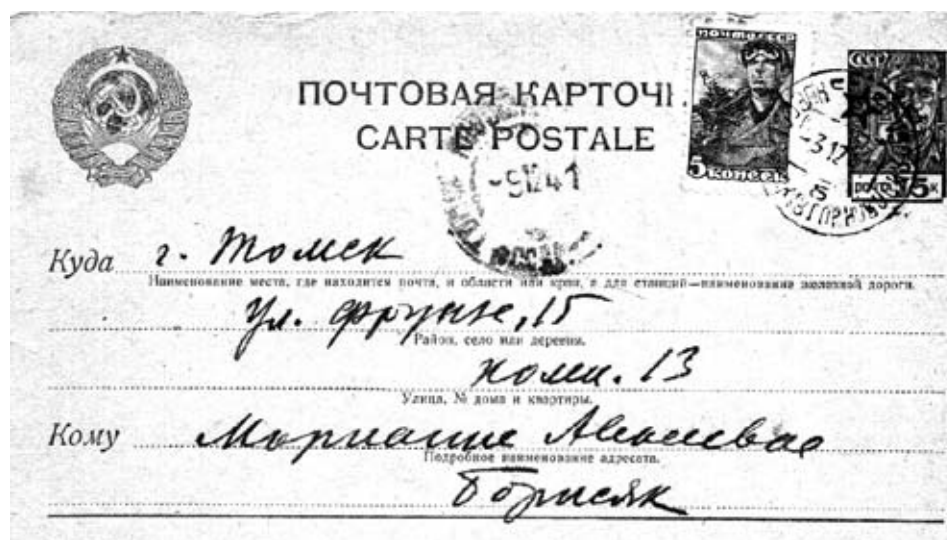 ПОЧТОВАЯ КАРТОЧ
CARTE POSTALE
ПОЧТА СССР
5 КОПЕЕК
СССР
ПОЧТА 15 К
-3 12
-9 12 41
Куда г. Томск
Наименование места, где находится почта, и области или края, а для станций—наименование железной дороги.
Ул. Фрунзе, 15
Район, село или деревня.
комн. 13
Улица, № дома и квартиры.
Кому Марианне Алексеевне
Подробное наименование адресата.
Борисяк